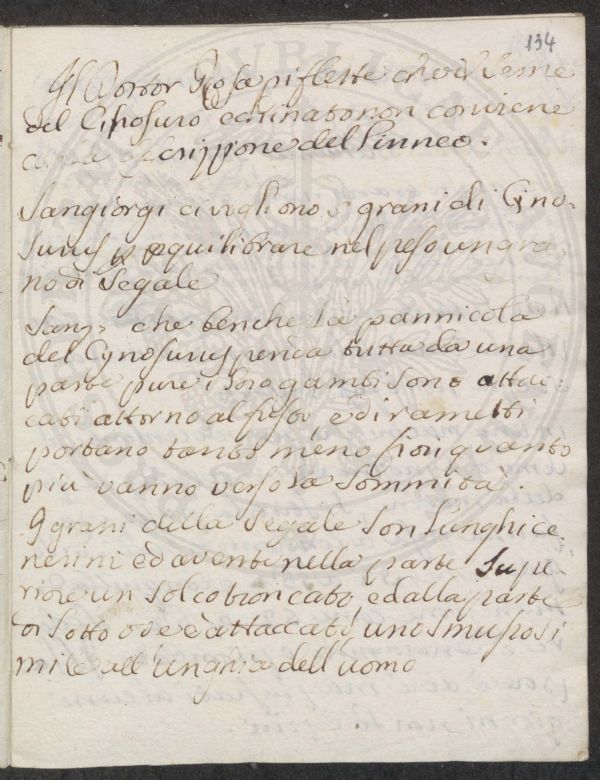 134
Il Dottor Rosa piflette che il seme
del Cinosuro echinato non conviene
con la descrizzione del Linneo.
Sangiorgi ci vogliono 5 grani di Cino-
surus p equilibrare nel peso un gra-
no di Segale
Sang: che benche la pannicola
del Cynosurus penda tutta da una
parte pure i loro gambi sono attac-
cati attorno al fusto, e di rametti
portano tanto meno fiori quanto
più vanno verso la sommità.
I grani della Segale son lunghi ce-
nerini ed aventi nella parte Supe-
riore un solco troncato, e dalla parte
di sotto ov'è attaccato, uno smusso si
mile all'unghia dell'uomo